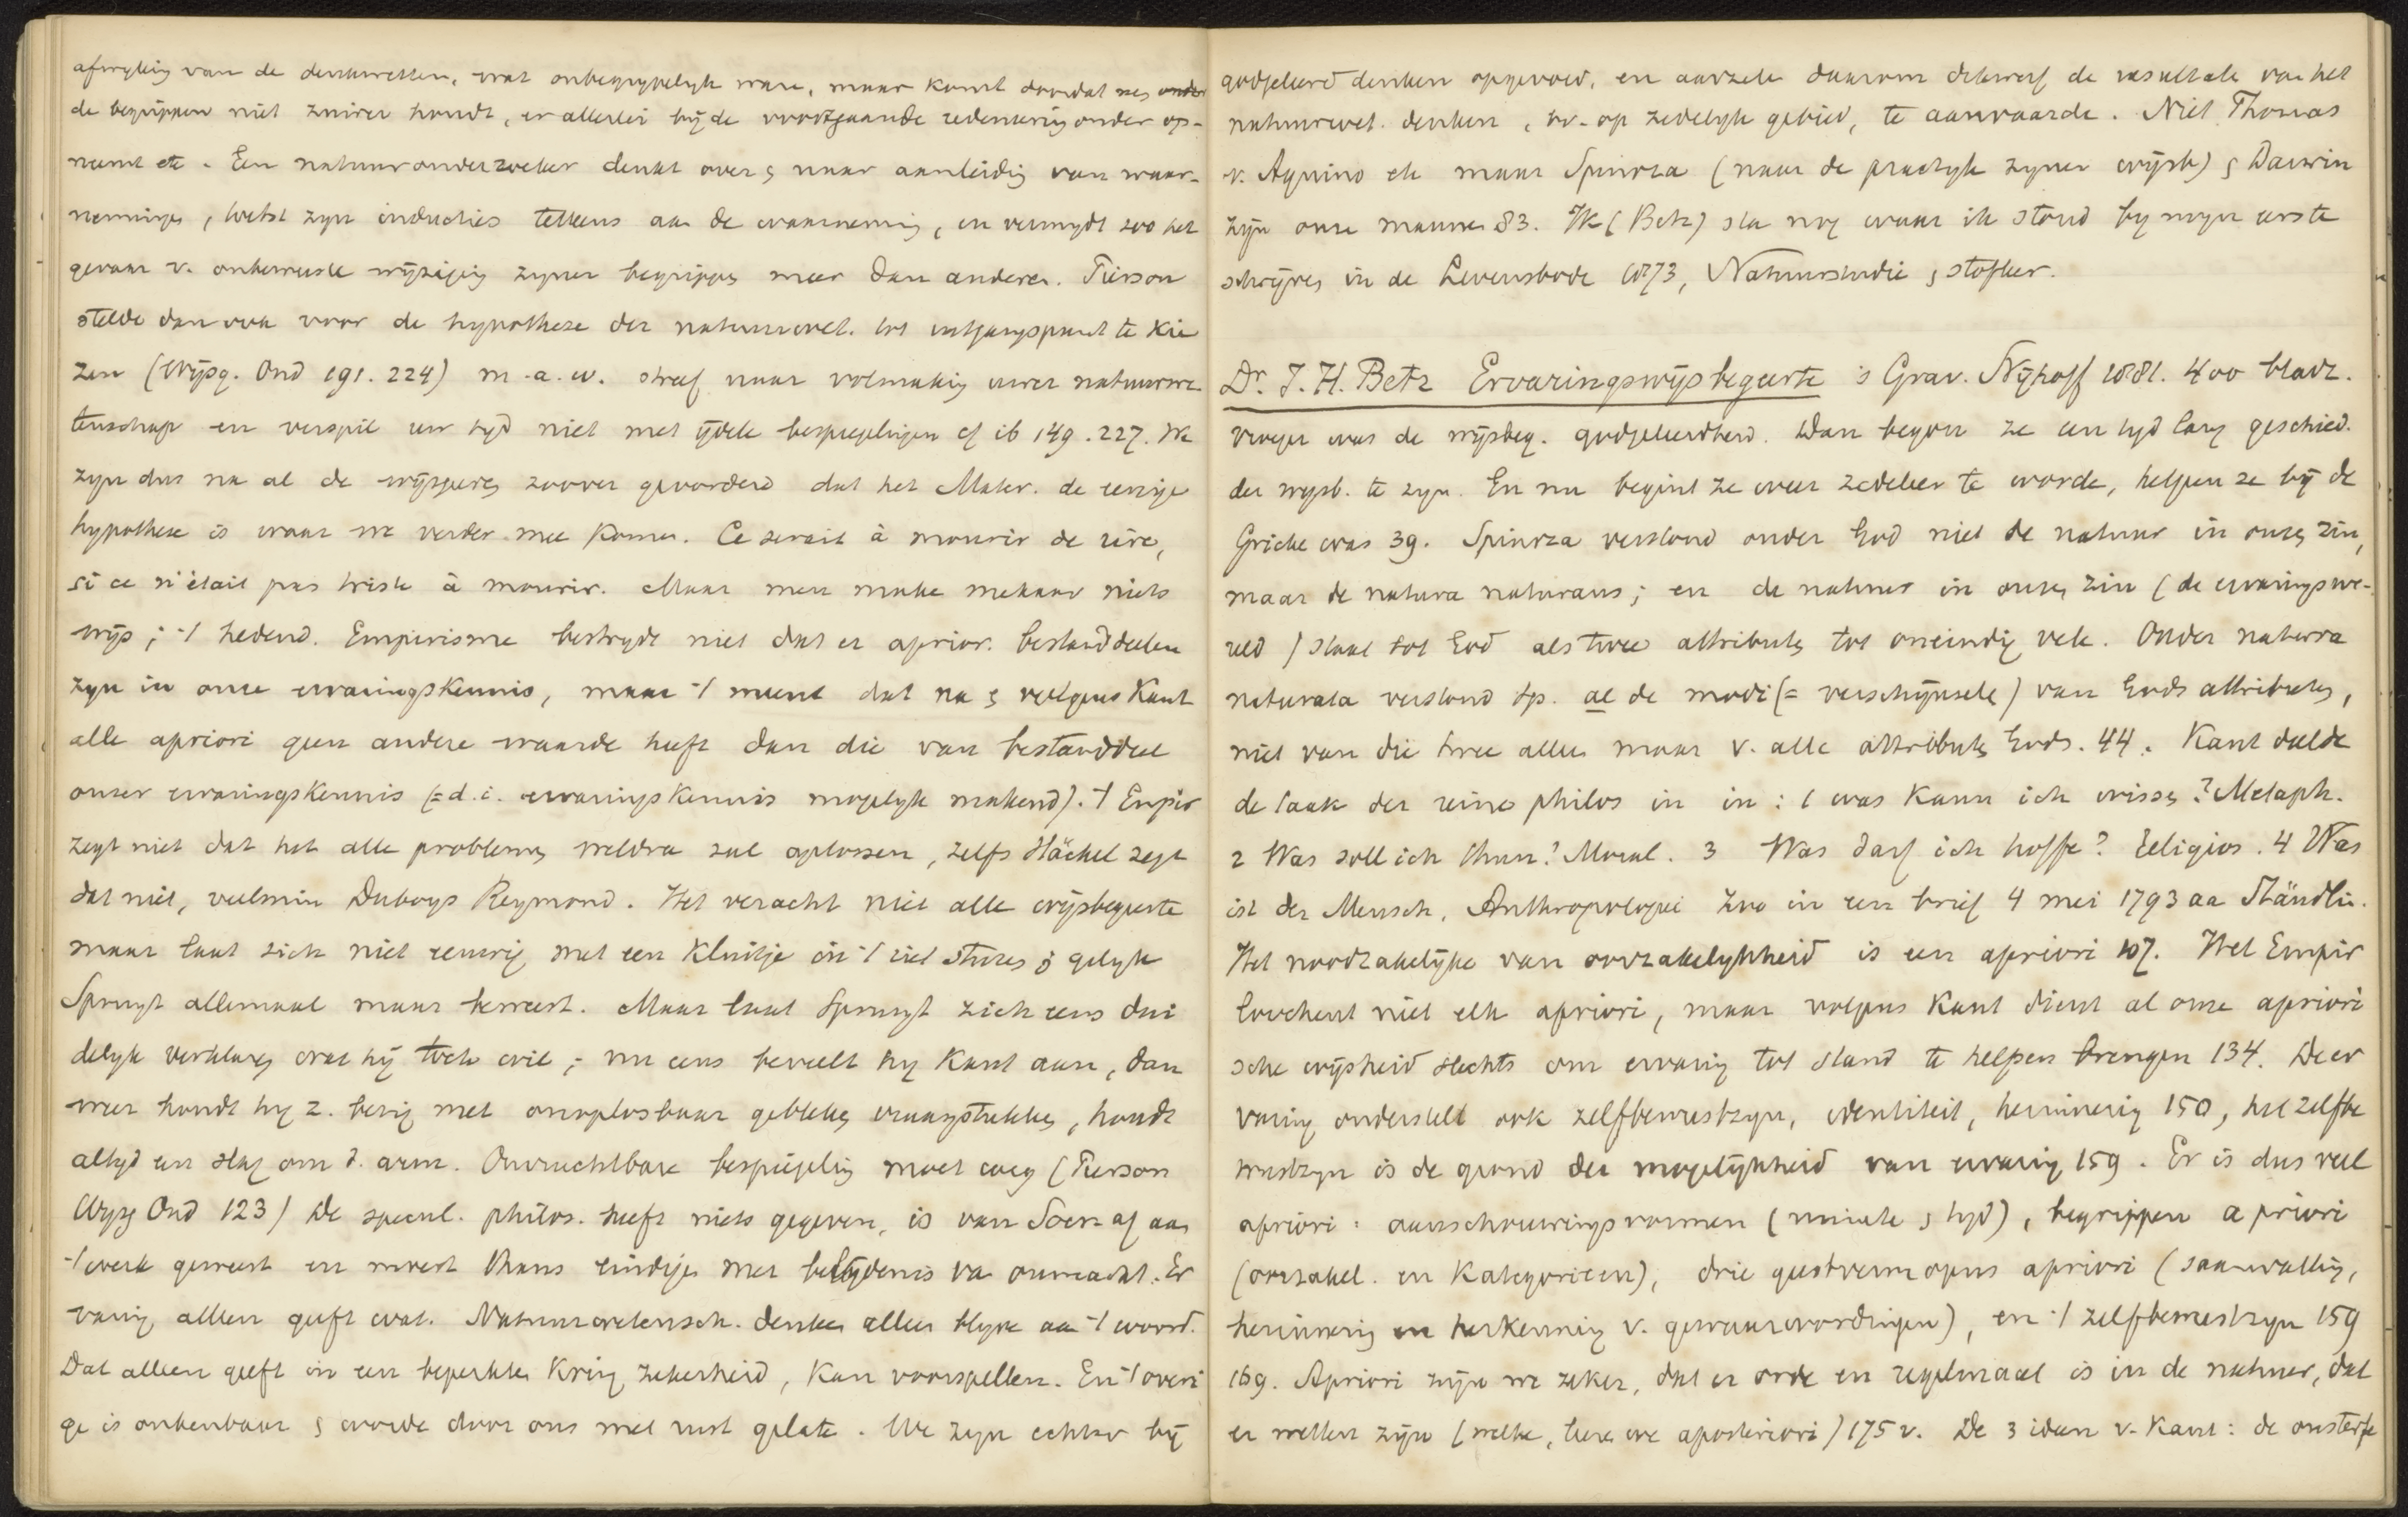 afwyking van de denkwetten, wat onbegrypelyk ware, maar komt doordat men onder
de begrippen niet zuiver houdt, er allerlei bij de voortgaande redeneering onder op-
neemt etc. Een natuuronderzoeker denkt over & naar aanleiding van waar-
nemingen, toetst zyn inducties telkens aan de waarneming, en vermydt zoo het
gevaar v. onbewuste wijziging zyner begrippen meer dan anderen. Pierson
stelde dan ook voor de hypothese der natuurwet. tot uitgangspunt te kie
zen (Wijsg. Ond 191. 224) m.a.w. streef naar volmaking uwer natuurwe
tenschap en verspil uw tyd niet met ijdele bespiegelingen cf ib 149. 227. We
zyn dus na al de wijsgeeren zoover gevorderd dat het Mater. de eenige
hypothese is waar we verder mee komen. Ce serait à mourir de rire,
si ce n'était pas triste à mourir. Maar men make mekaar niets
wijs; 't hedend. Empirisme bestryde niet dat er aprior. bestanddeelen
zyn in onze ervaringskennis, maar 't meent dat na & volgens Kant
alle apriori geen andere waarde heeft dan die van bestanddeel
onzer ervaringskennis (= d.i. ervaringskennis mogelyk makend). 't Empir
zegt niet dat het alle problemen weldra zal oplossen, zelfs Häckel zegt
dat niet, veelmin Duboys Reymond. Het veracht niet alle wijsbegeerte
maar laat zich niet eeuwig met een kluitje in 't riet sturen & gelyk
Spruyt allemaal maar beweert. Maar laat Spruyt zich eens dui
delyk verklaren wat hij toch wil; nu eens beveelt hy Kant aan, dan
weer houdt hy z. bezig met onoplosbaar gebleken vraagstukken, houdt
altyd een slag om d. arm. Onvruchtbare bespiegeling moet weg (Pierson
Wysg Ond 123) De specul. philos. heeft niets gegeven, is van Socr. af aan
't werk geweest en moest thans eindigen met belydenis van onmacht. Er
varing alleen geeft wat. Natuurwetensch. denken alleen blyve aan 't woord.
Dat alleen geeft in een beperkten kring zekerheid, kan voorspellen. En 't overi
ge is onkenbaar & worde door ons met rust gelaten. We zyn echter bij
godgeleerd denken opgevoed, en aarzelen daarom dikwerf de resultate van het
natuurwet. denken, bv. op zedelyk gebied, te aanvaarde. Niet Thomas
v. Aquino etc maar Spinoza (naar de practyk zyner wijsb) & Darwin
zijn onze mannen 83. Ik (Betz) sta nog waar ik stond by myn eerste
schrijven in de Levensbode 1873, Natuurstudie & stofleer.
Dr. J. H. Betz Ervaringswijsbegeerte 's Grav. Nijhoff 1881. 400 bladz.
Vroeger was de wijsbeg. godgeleerdheid. Dan begon ze een tyd lang geschied.
der wysb. te zyn. En nu begint ze weer zedeleer te worde, hetgeen ze bij de
Grieke was 39. Spinoza verstond onder God niet de natuur in onzen zin,
maar de natura naturans; en de natuur in onzen zin (de ervaringswe-
reld) staat tot God als twee attributen tot oneindig vele. Onder natura
naturata verstond Sp. al de modi (= verschijnsele) van Gods attributen,
niet van die twee alleen maar v. alle attributen Gods. 44. Kant deelde
de taak der reine philos in in: 1 was kann ich wissen? Metaph.
2 Was soll ich thun? Moral. 3 Was darf ich hoffe? Religion. 4 Was
ist der Mensch, Anthropologie zoo in een brief 4 mei 1793 aa Stäudlin.
Het noodzakelijke van oorzakelykheid is een apriori 107. Het Empir
loochent niet elk apriori, maar volgens Kant dient al onze apriori
sche wijsheid slechts om ervaring tot stand te helpen brengen 134. De er
varing onderstelt ook zelfbewustzyn, identiteit, herinnering 150, het zelfbe
wustzyn is de grond der mogelijkheid van ervaring 159. Er is dus veel
apriori: aanschouwingsvormen (ruimte & tyd), begrippen a priori
(oorzakel. en Kategorieen), drie geestvermogens apriori (saamvatting,
herinnering en herkenning v. gewaarwordingen), en 't zelfbewustzyn 159
169. Apriori zijn we zeker, dat er orde en regelmaat is in de natuur, dat
er wetten zijn (welke, leren we aposteriori) 175 v. De 3 ideen v. Kant: de onsterfe